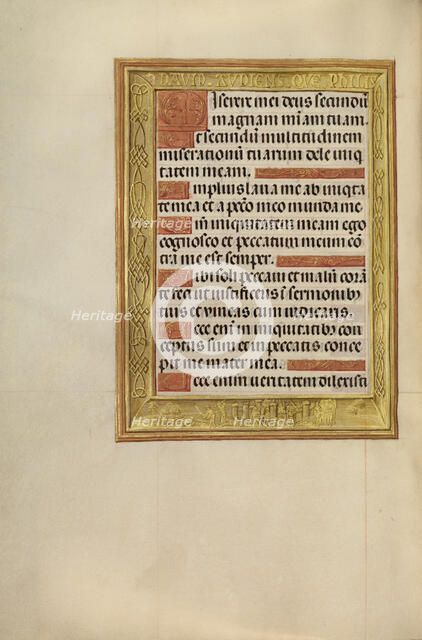 DAVID AUDIENS QUE PHILIS
Miserere mei deus secundū
magnam mīam tuam.
Et secundū multitudinem
miserationū tuarum dele iniq̄
tatem meam.
Amplius laua me ab iniq̄ta
te mea et a pctō meo munda me
Qm̄ iniquitatem meam ego
cognosco et peccatum meum cō
tra me est semper.
Tibi soli peccaui et malū corā
te feci ut iustificeris ī sermonibꝰ
tuis et vincas cum iudicaris.
Ecce em̄ in iniquitatibꝰ con
ceptus sum et in peccatis conce
pit me mater mea.
Ecce enim ueritatem dilexisti
Heritage Heritage
Heritage Heritage Heritage
Heritage Heritage